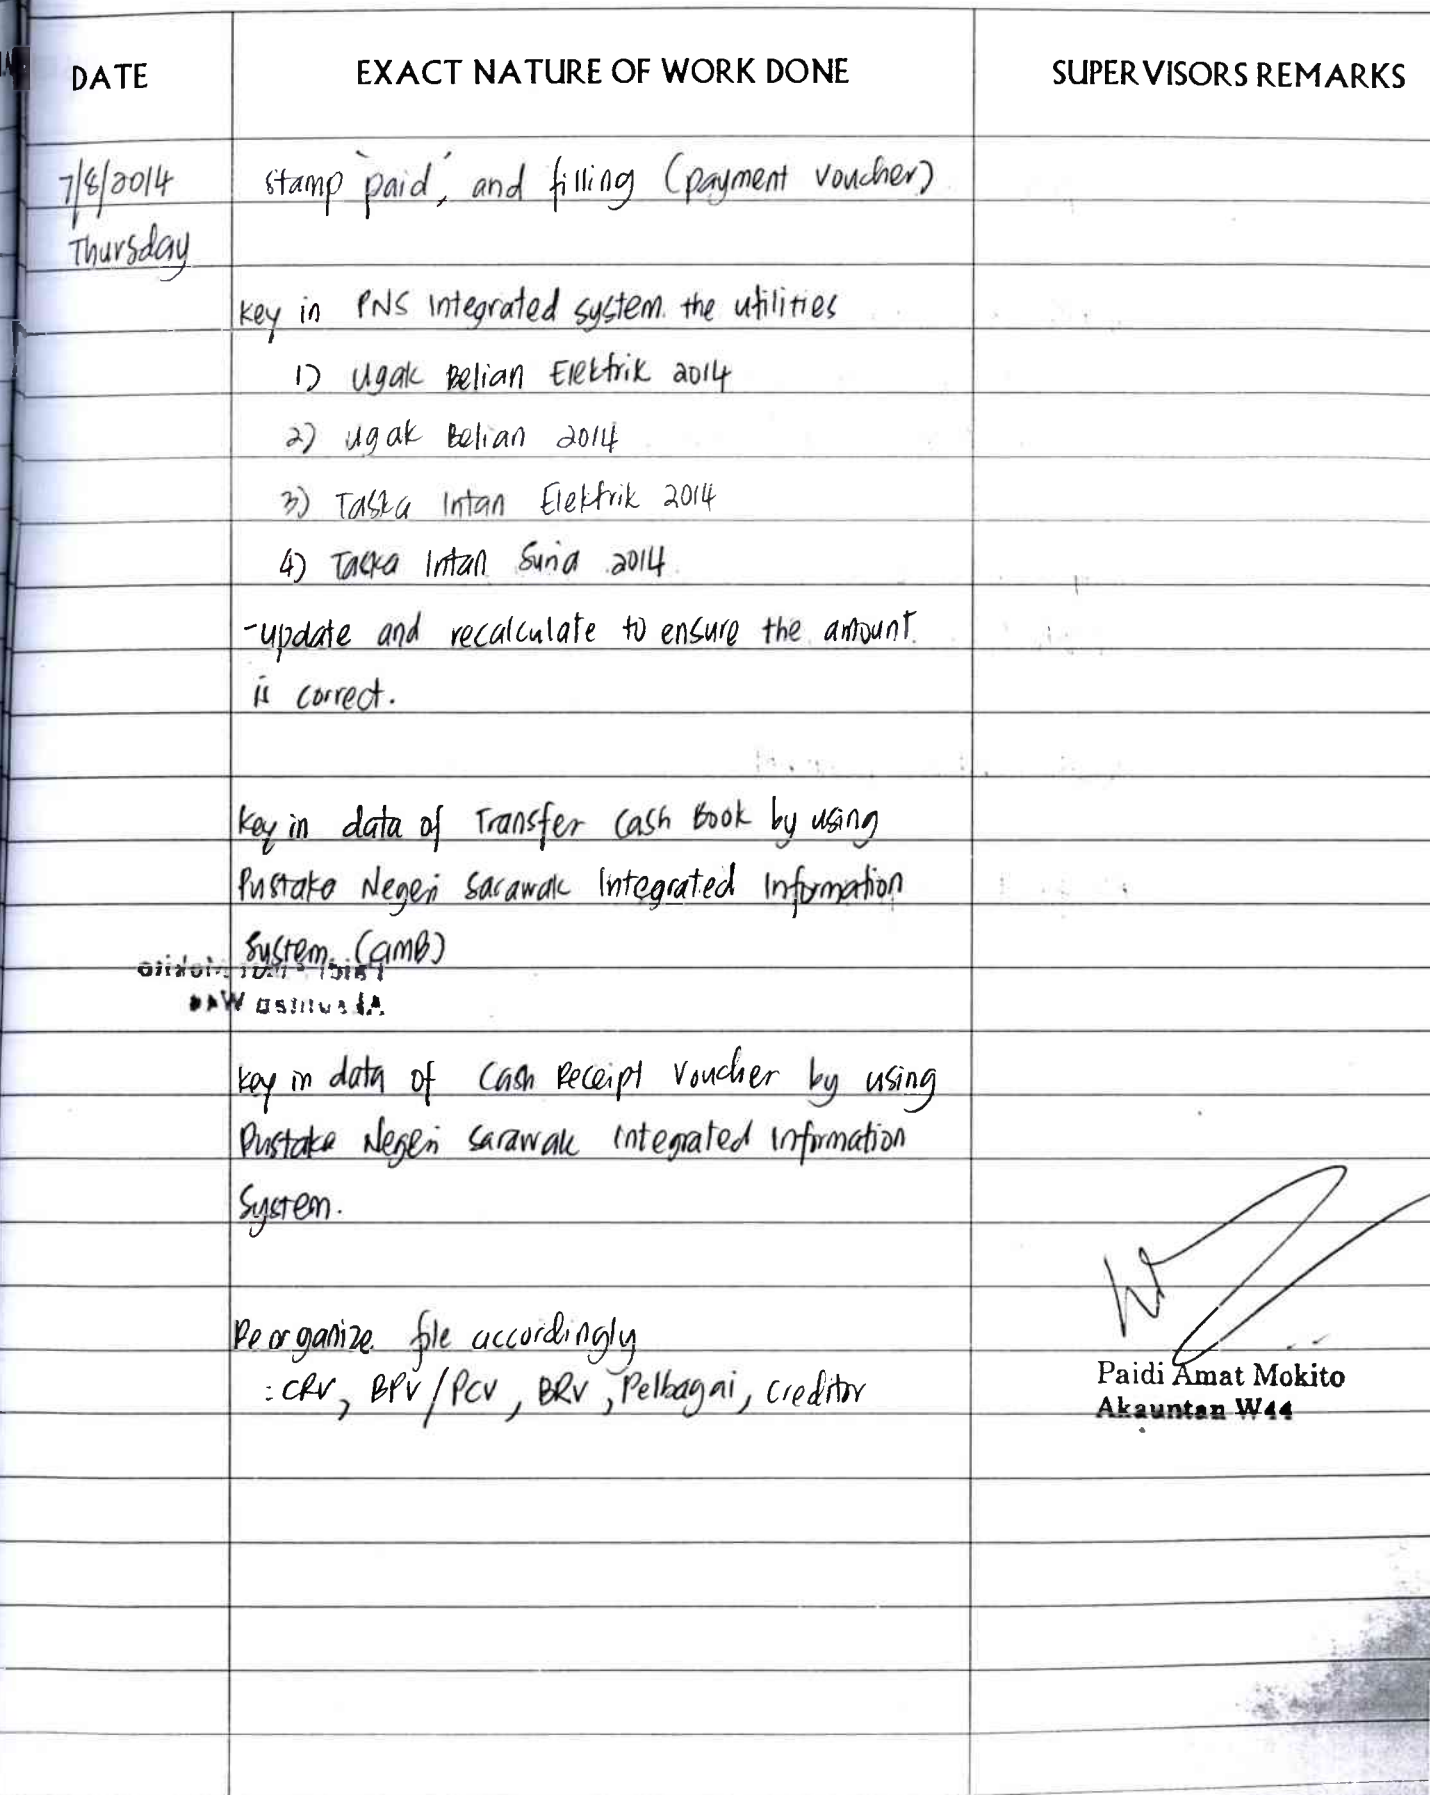 DATE EXACT NATURE OF WORK DONE SUPERVISORS REMARKS
7/8/2014 stamp "paid", and filling (payment voucher)
Thursday
key in PNS Integrated system the utilities
1) Ugak Belian Elektrik 2014
2) Ugak Belian 2014
3) Taska Intan Elektrik 2014
4) Taska Intan 2014
-update and recalculate to ensure the amount
is correct.
Key in data of Transfer Cash Book by using
Pustaka Negeri Sarawak Integrated Information
System.
Key in data of Cash Receipt Voucher by using
Pustaka Negeri Sarawak Integrated Information
System.
Reorganize file accordingly
: CRV, BPV/PCV, BRV, Pelbagai, creditor
Paidi Amat Mokito
Akauntan W44